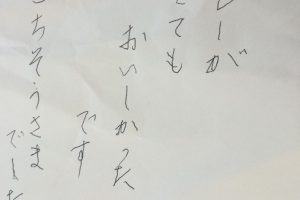 レーが
ても
おいしかった
です
ちそうさま
でした